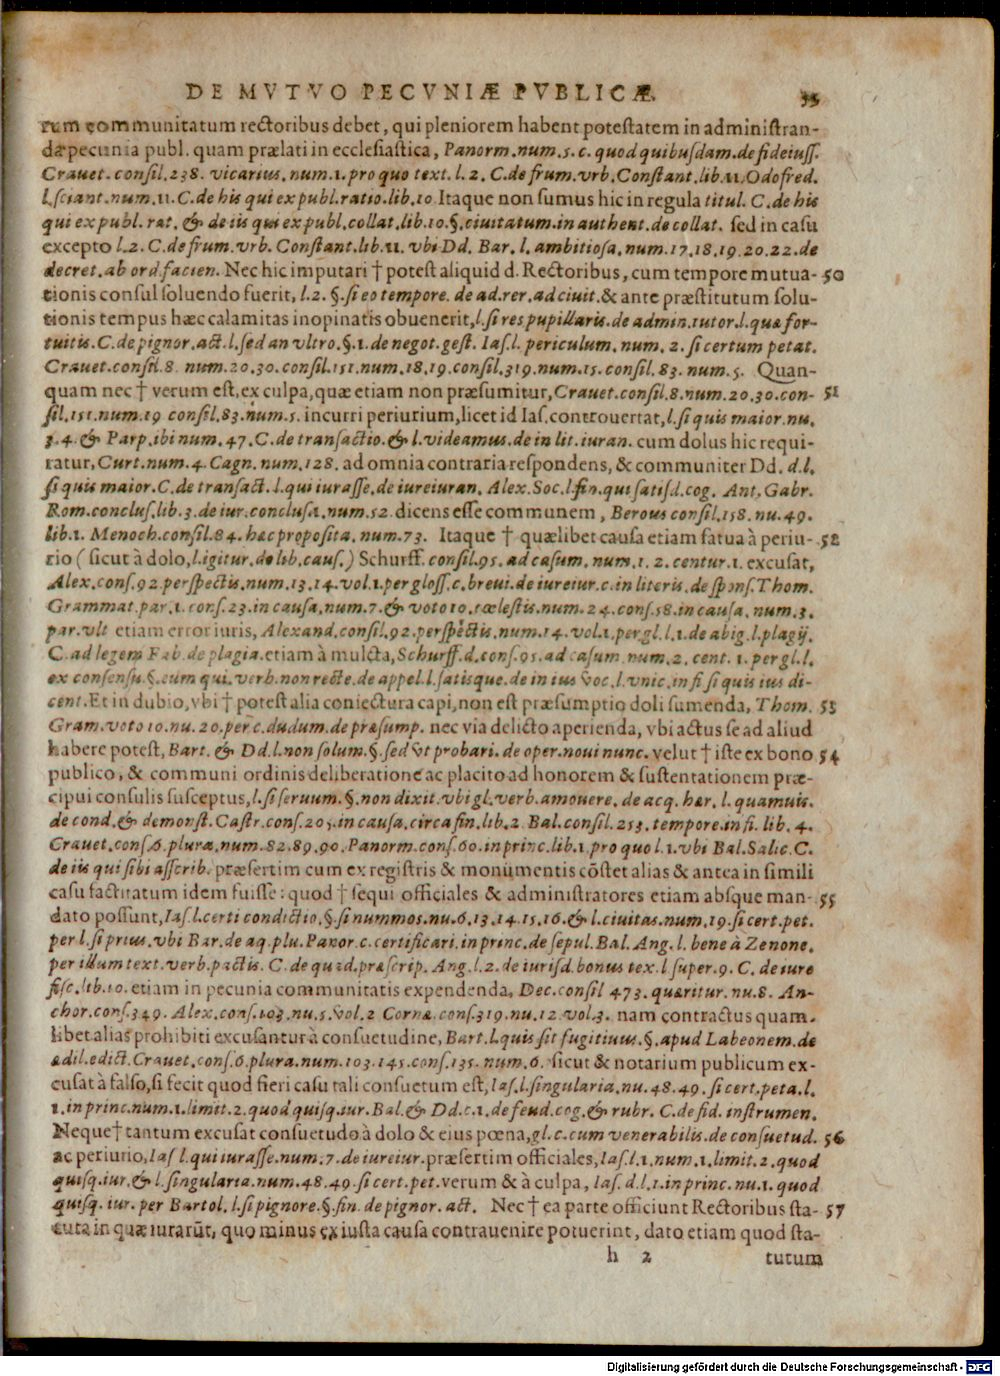 DE MVTVO PECVNIÆ PVBLICÆ. 55
rum communitatum rectoribus debet, qui pleniorem habent potestatem in administran-
da pecunia publ. quam prælati in ecclesiastica, Panorm. num. 5. c. quod quibusdam. de fideiuss.
Crauet. consil. 238. vicarius. num. 1. pro quo text. l. 2. C. de frum. vrb. Constant. lib. 11. Odofred.
l. sciant. num. 11. C. de his qui ex publ. ratio. lib. 10 Itaque non sumus hic in regula titul. C. de his
qui ex publ. rat. & de iis qui ex publ. collat. lib. 10. §. ciuitatum. in authent. de collat. sed in casu
excepto l. 2. C. de frum. vrb. Constant. lib. 11. vbi Dd. Bar. l. ambitiosa. num. 17. 18. 19. 20. 22. de
decret. ab ord. facien. Nec hic imputari † potest aliquid d. Rectoribus, cum tempore mutua- 50
tionis consul soluendo fuerit, l. 2. §. si eo tempore. de ad. rer. ad ciuit. & ante præstitutum solu-
tionis tempus hæc calamitas inopinatis obuenerit, l. si res pupillaris. de admin. tutor. l. quæ for-
tuitis. C. de pignor. act. l. sed an vltro. §. 1. de negot. gest. Ias. l. periculum. num. 2. si certum petat.
Crauet. consil. 8. num. 20. 30. consil. 151. num. 18. 19. consil. 319. num. 15. consil. 83. num. 5. Quan-
quam nec † verum est, ex culpa, quæ etiam non præsumitur, Crauet. consil. 8. num. 20. 30. con- 51
sil. 151. num. 19 consil. 83. num. 5. incurri periurium, licet id Ias. controuertat, l. si quis maior. nu.
3. 4. & Parp. ibi num. 47. C. de transactio. & l. videamus. de in lit. iuran. cum dolus hic requi-
ratur, Curt. num. 4. Cagn. num. 128. ad omnia contraria respondens, & communiter Dd. d. l.
si quis maior. C. de transact. l. qui iurasse. de iureiuran. Alex. Soc. l. fin. qui satisd. cog. Ant. Gabr.
Rom. conclus. lib. 3. de iur. conclus. 1. num. 52. dicens esse communem, Berous consil. 158. nu. 49.
lib. 1. Menoch. consil. 84. hæc proposita. num. 73. Itaque † quælibet causa etiam fatua à periu- 52
rio ( sicut à dolo, l. igitur. de lib. caus. ) Schurff. consil. 95. ad casum. num. 1. 2. centur. 1. excusat,
Alex. cons. 92. perspectis. num. 13. 14. vol. 1. per gloss. c. breui. de iureiur. c. in literis. de spons. Thom.
Grammat. par. 1. cons. 23. in causa. num. 7. & voto 10. cælestis. num. 24. cons. 58. in causa. num. 3.
par. vlt etiam error iuris, Alexand. consil. 92. perspectis. num. 14. vol. 1. per gl. l. 1. de abig. l. plagij.
C. ad legem Fab. de plagia. etiam à mulcta, Schurff. d. cons. 95. ad casum. num. 2. cent. 1. per gl. l.
ex consensu. §. eum qui. verb. non recte. de appel. l. satisque. de in ius voc. l. vnic. in fi si quis ius di-
cent. Et in dubio, vbi † potest alia coniectura capi, non est præsumptio doli sumenda, Thom. 53
Gram. voto 10. nu. 20. per c. dudum. de præsump. nec via delicto aperienda, vbi actus se ad aliud
habere potest, Bart. & Dd l. non solum. §. sed vt probari. de oper. noui nunc. velut † iste ex bono 54
publico, & communi ordinis deliberatione ac placito ad honorem & sustentationem præ-
cipui consulis susceptus, l. si seruum. §. non dixit. vbi gl. verb. amouere. de acq. hær. l. quamuis.
de cond. & demonst. Castr. cons. 205. in causa. circa fin. lib. 2. Bal. consil. 253. tempore. in fi. lib. 4.
Crauet. cons. 6. plura. num. 82. 89. 90. Panorm. cons. 60. in princ. lib. 1. pro quo l. 1. vbi Bal. Salic. C.
de iis qui sibi asscrib. præsertim cum ex registris & monumentis cõstet alias & antea in simili
casu factitatum idem fuisse: quod † sequi officiales & administratores etiam absque man- 55
dato possunt, Ias. l. certi condictio. §. si nummos. nu. 6. 13. 14. 15. 16. & l. ciuitas. num. 19. si cert. pet.
per l. si prius. vbi Bar. de aq. plu. Panor. c. certificari. in princ. de sepul. Bal. Ang. l. bene à Zenone.
per illum text. verb. pactis. C. de quad. præscrip. Ang. l. 2. de iurisd. bonus tex. l super. 9. C. de iure
fisc. lib. 10. etiam in pecunia communitatis expendenda, Dec. consil 473. quæritur. nu. 8. An-
chor. cons. 349. Alex. cons. 103. nu. 5. vol. 2 Corne. cons. 319. nu. 12. vol. 3. nam contractus quam-
libet alias prohibiti excusantur à consuetudine, Bart. l. quis sit fugitiuus. §. apud Labeonem. de
ædil. edict. Crauet. cons. 6. plura. num. 103. 145. cons. 135. num. 6. sicut & notarium publicum ex-
cusat à falso, si fecit quod fieri casu tali consuetum est, Ias. l. singularia. nu. 48. 49. si cert. peta. l.
1. in princ. num. 1. limit. 2. quod quisq. iur. Bal. & Dd. c. 1. de feud. cog. & rubr. C. de fid. instrumen.
Neque † tantum excusat consuetudo à dolo & eius pœna, gl. c. cum venerabilis. de consuetud. 56
ac periurio, Ias l. qui iurasse. num. 7. de iureiur. præsertim officiales, Ias. l. 1. num. 1. limit. 2. quod
quisq. iur. & l. singularia. num. 48. 49. si cert. pet. verum & à culpa, Ias. d. l. 1. in princ. nu. 1. quod
quisq. iur. per Bartol. l. si pignore. §. fin. de pignor. act. Nec † ea parte officiunt Rectoribus sta- 57
tuta in quæ iurarũt, quo minus ex iusta causa contrauenire potuerint, dato etiam quod sta-
h 2 tutum
Digitalisierung gefördert durch die Deutsche Forschungsgemeinschaft - DFG